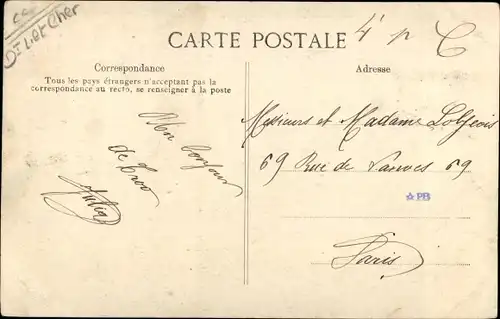 cc
Dt Loir et Cher
CARTE POSTALE
4 p C
Correspondance
Tous les pays étrangers n'acceptant pas la
correspondance au recto, se renseigner à la poste
Adresse
Mon bonjour
de Troo
Julia
Messieurs et Madame
69 Rue de Vanves 69
☆PB
Paris